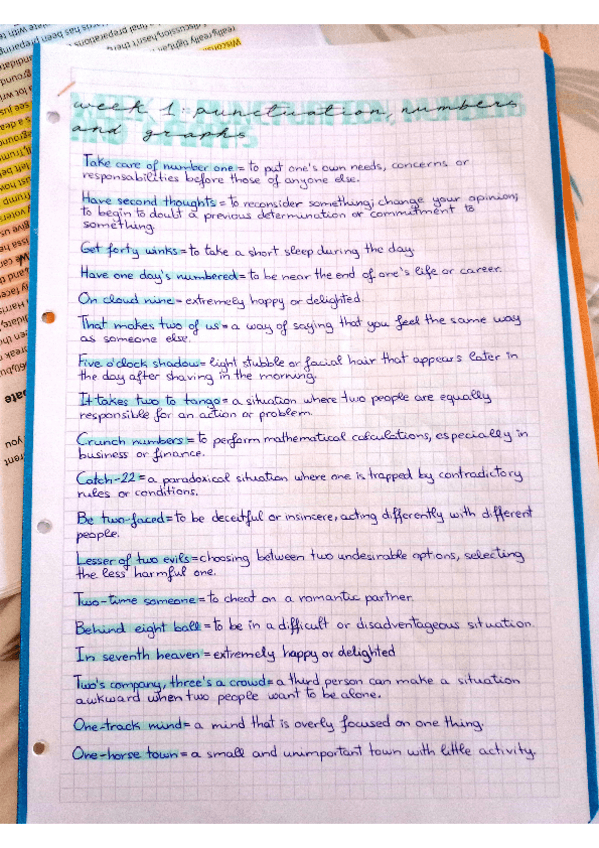 week 1: punctuation, numbers
and graphs
Take care of number one = to put one's own needs, concerns or
responsabilities before those of anyone else.
Have second thoughts = to reconsider something; change your opinion;
to begin to doubt a previous determination or commitment to
something.
Get forty winks = to take a short sleep during the day.
Have one day's numbered = to be near the end of one's life or career.
On cloud nine = extremely happy or delighted.
That makes two of us = a way of saying that you feel the same way
as someone else.
Five o'clock shadow = light stubble or facial hair that appears later in
the day after shaving in the morning.
It takes two to tango = a situation where two people are equally
responsible for an action or problem.
Crunch numbers = to perform mathematical calculations, especially in
business or finance.
Catch-22 = a paradoxical situation where one is trapped by contradictory
rules or conditions.
Be two-faced = to be deceitful or insincere, acting differently with different
people.
Lesser of two evils = choosing between two undesirable options, selecting
the less harmful one.
Two-time someone = to cheat on a romantic partner.
Behind eight ball = to be in a difficult or disadventageous situation.
In seventh heaven = extremely happy or delighted
Two's company, three's a crowd = a third person can make a situation
awkward when two people want to be alone.
One-track mind = a mind that is overly focused on one thing.
One-horse town = a small and unimportant town with little activity.